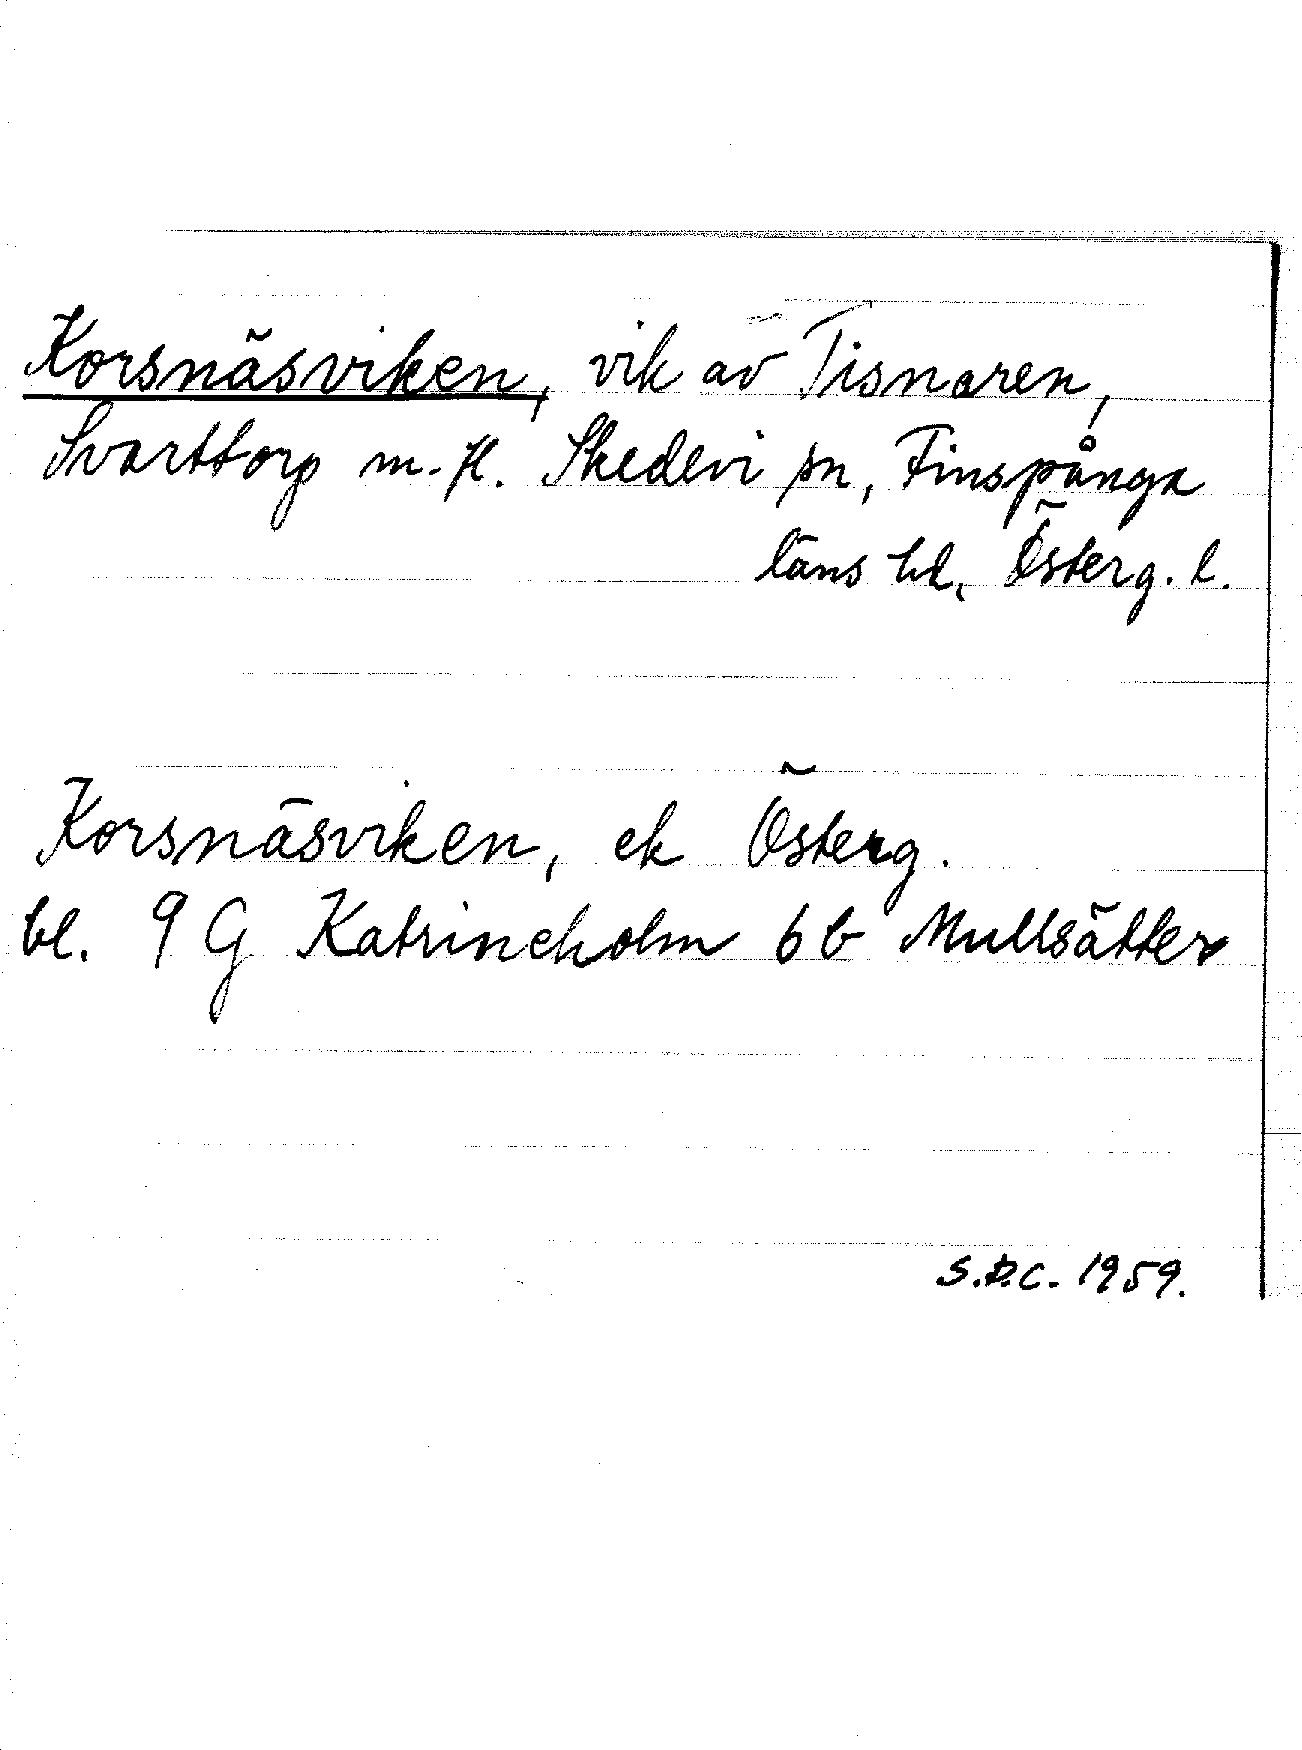 Korsnäsviken, vik av Tisnaren,
Svarttorp m. fl. Skedevi sn, Finspånga
läns hd, Österg. l.
Korsnäsviken, ek Österg.
bl. 9 G Katrineholm 6 b Mullsätter
S.D.C. 1959.